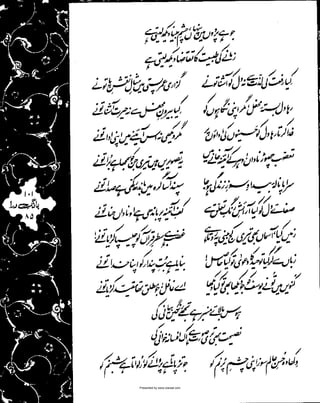 جو ہے پردوں میں پنہاں، چشمِ بینا دیکھ لیتی ہے
زمانے کی طبیعت کا تقاضا دیکھ لیتی ہے
کیا رفعت کی لذت سے نہ دل کو آشنا تو نے
گزاری عمر پستی میں مثالِ نقشِ پا تو نے
رہا دل بستۂ محفل، مگر اپنی نگاہوں کو
کیا بیرونِ محفل سے نہ حیرت آشنا تو نے
فدا کرتا رہا دل کو حسینوں کی اداؤں پر
مگر دیکھی نہ اس آئینے میں اپنی ادا تو نے
تعصب چھوڑ ناداں! دہر کے آئینہ خانے میں
یہ تصویریں ہیں تیری جن کو سمجھا ہے برا تو نے
سراپا نالۂ بیدادِ سوزِ زندگی ہو جا
سپند آسا گرہ میں باندھ رکھی ہے صدا تو نے
صفائے دل کو کیا آرائشِ رنگِ تعلق سے
کفِ آئینہ پر باندھی ہے او ناداں حنا تو نے
زمیں کیا، آسماں بھی تیری کج بینی پہ روتا ہے
غضب ہے سطرِ قرآں کو چلیپا کر دیا تو نے!
زباں سے گر کیا توحید کا دعویٰ تو کیا حاصل!
بنایا ہے بتِ پندار کو اپنا خدا تو نے
کنویں میں تو نے یوسف کو جو دیکھا بھی تو کیا دیکھا
ارے غافل! جو مطلق تھا مقید کر دیا تو نے
ہوس بالائے منبر ہے تجھے رنگیں بیانی کی
نصیحت بھی تری صورت ہے اک افسانہ خوانی کی
دکھا وہ حسنِ عالم سوز اپنی چشمِ پرنم کو
جو تڑپاتا ہے پروانے کو، رلواتا ہے شبنم کو
۱۰۱
بانگِ درا
۸۵
Presented by